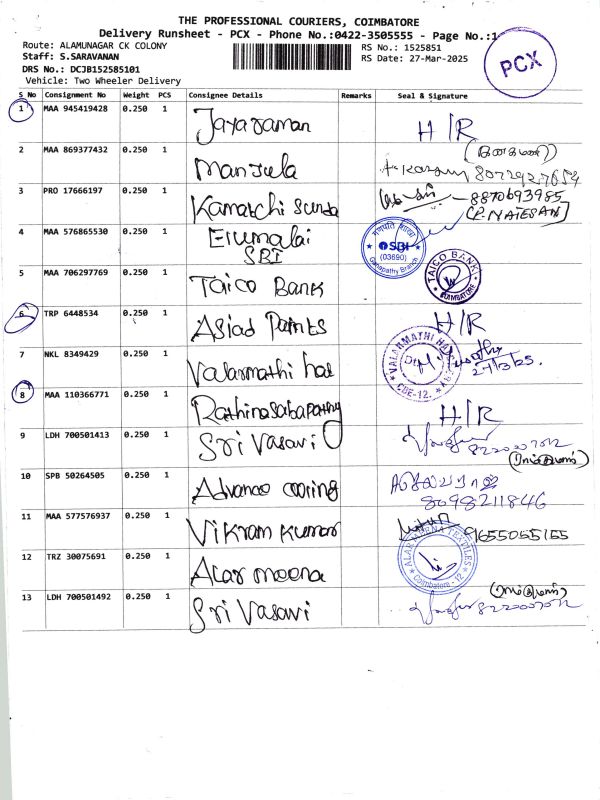 THE PROFESSIONAL COURIERS, COIMBATORE
Delivery Runsheet - PCX - Phone No.:0422-3505555 - Page No.:1
Route: ALAMUNAGAR CK COLONY
RS No.: 1525851
Staff: S.SARAVANAN
RS Date: 27-Mar-2025
DRS No.: DCJB152585101
Vehicle: Two Wheeler Delivery
PCX
S No Consignment No Weight PCS Consignee Details Remarks Seal & Signature
1 MAA 945419428 0.250 1 Jayaraman H/R
2 MAA 869377432 0.250 1 Manjula
3 PRO 17666197 0.250 1 Kamatchi Sunda 8870693985
4 MAA 576865530 0.250 1 Erumalai
SBI
SBI
(03690)
Ganapathy Branch
5 MAA 706297769 0.250 1 Taico Bank
TAICO BANK
COIMBATORE
6 TRP 6448534 0.250 1 Asiad Paints H/R
7 NKL 8349429 0.250 1 Valarmathi hos
27/3/25.
CBE-12.
8 MAA 110366771 0.250 1 Rathinasabapathy H/R
9 LDH 700501413 0.250 1 Sri Vasavi
10 SPB 50264505 0.250 1 Advance cooling
8098211846
11 MAA 577576937 0.250 1 Vikram Kumar 9655055155
12 TRZ 30075691 0.250 1 Alar meena
ALARMEENA TEXTILES
Coimbatore - 12
13 LDH 700501492 0.250 1 Sri Vasavi